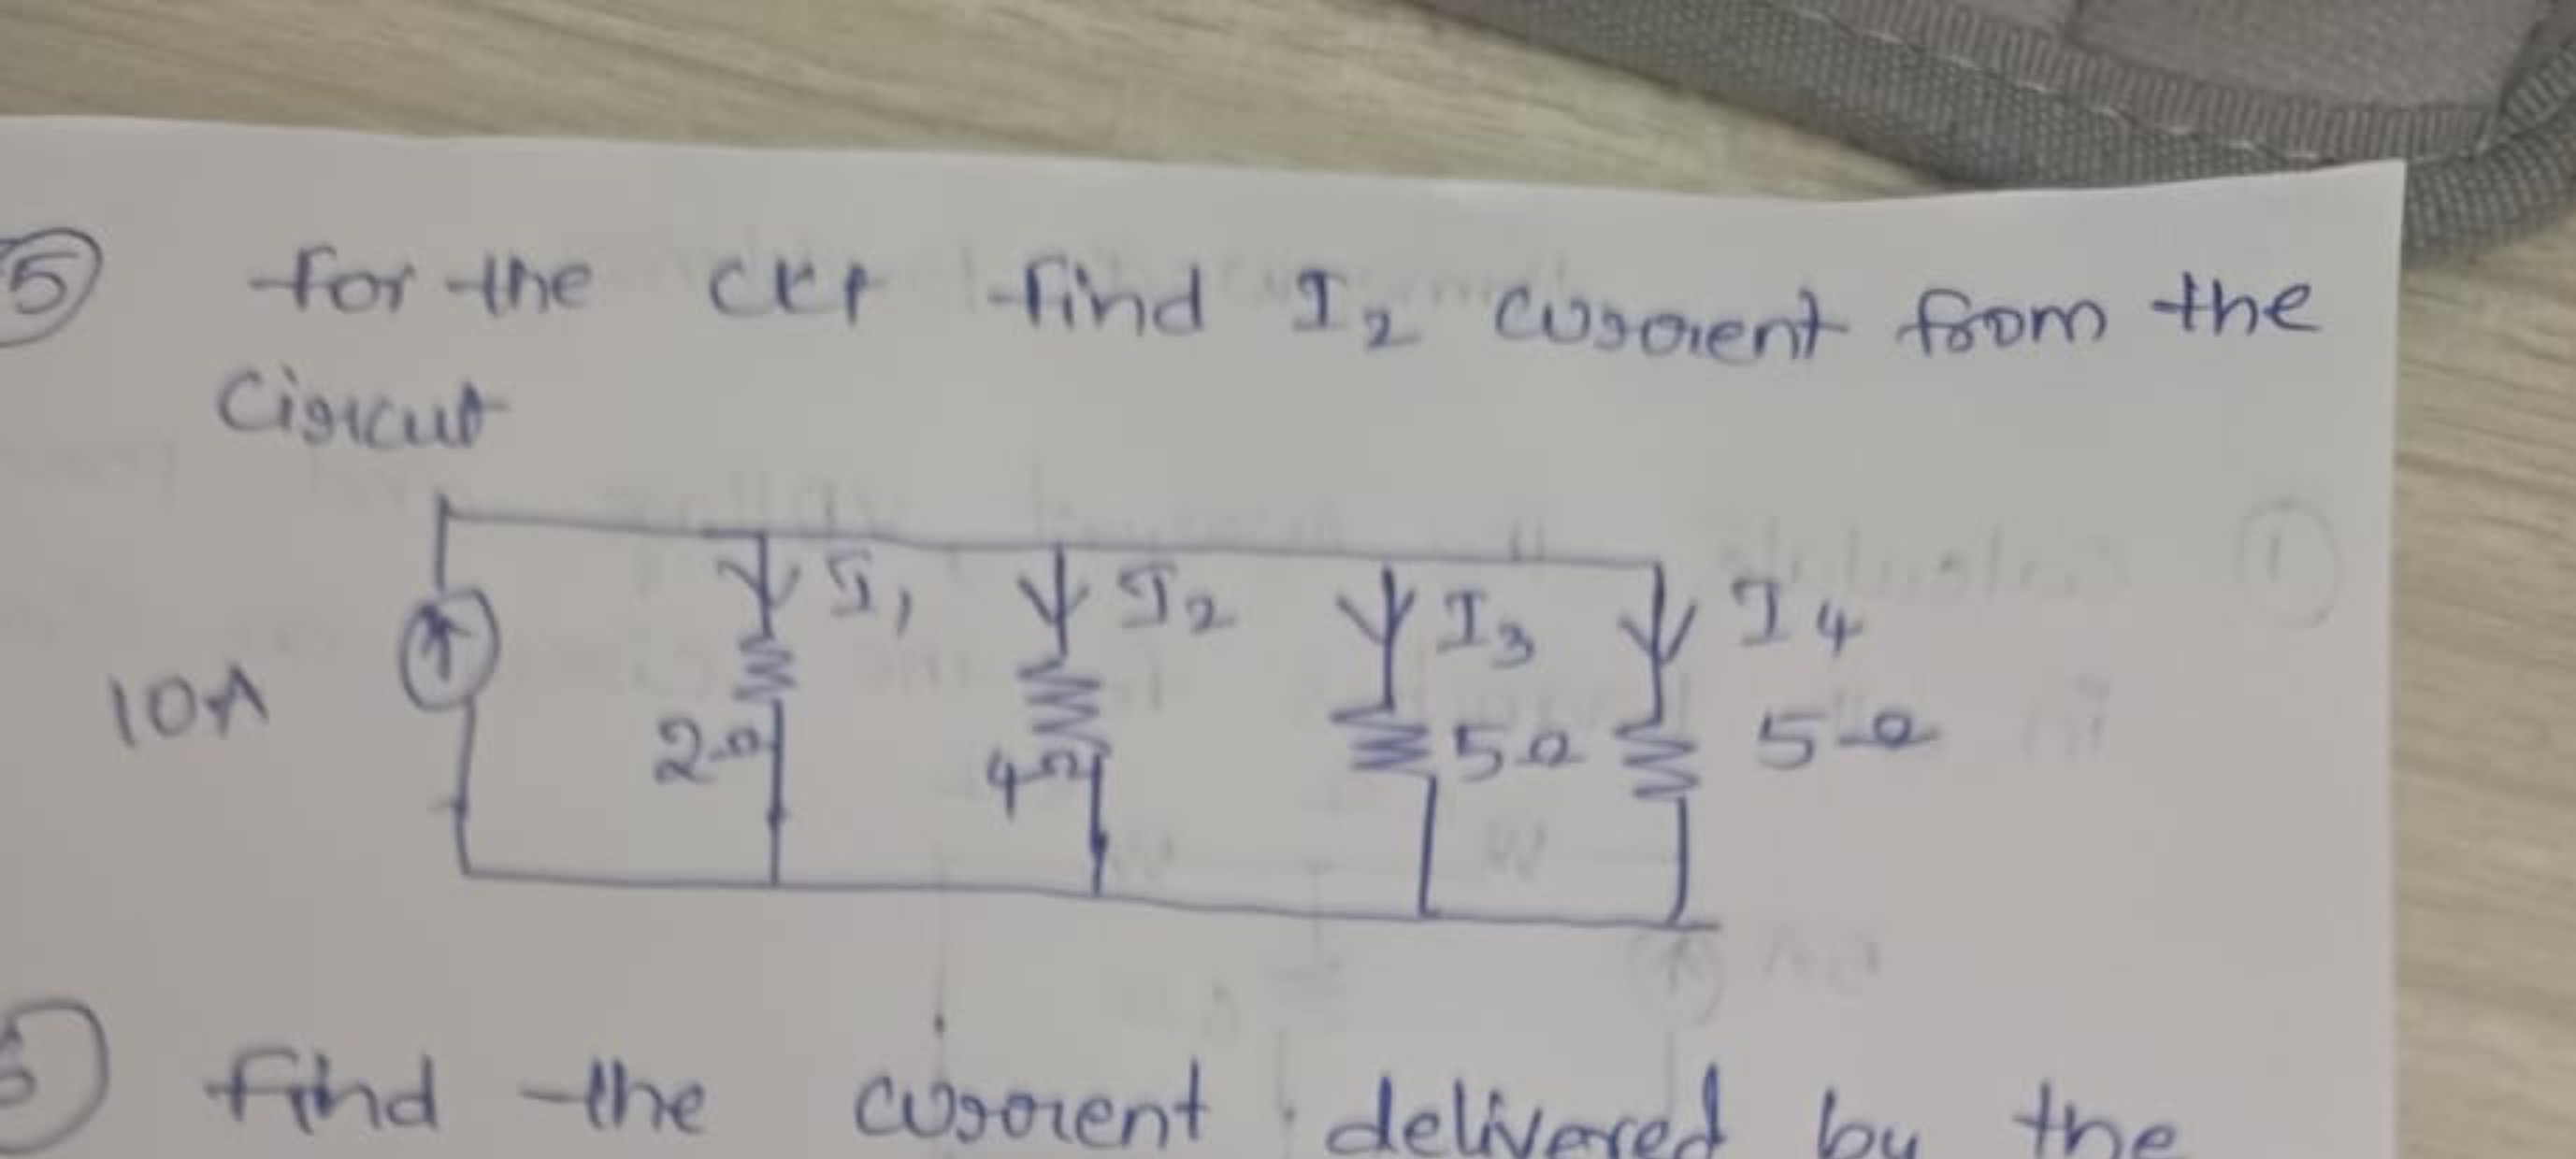 5 for the ckt find I2 current from the
Circut
10A
I1 I2 I3 I4
2Ω 4Ω 5Ω 5Ω
find the current delivered by the